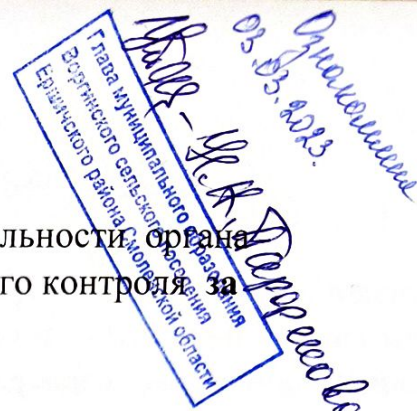 Ознакомлена
03.03.2023.
Глава муниципального образования
Воргинского сельского поселения
Ершичского района Смоленской области
Н.К. Парфенова
льности органа
го контроля за